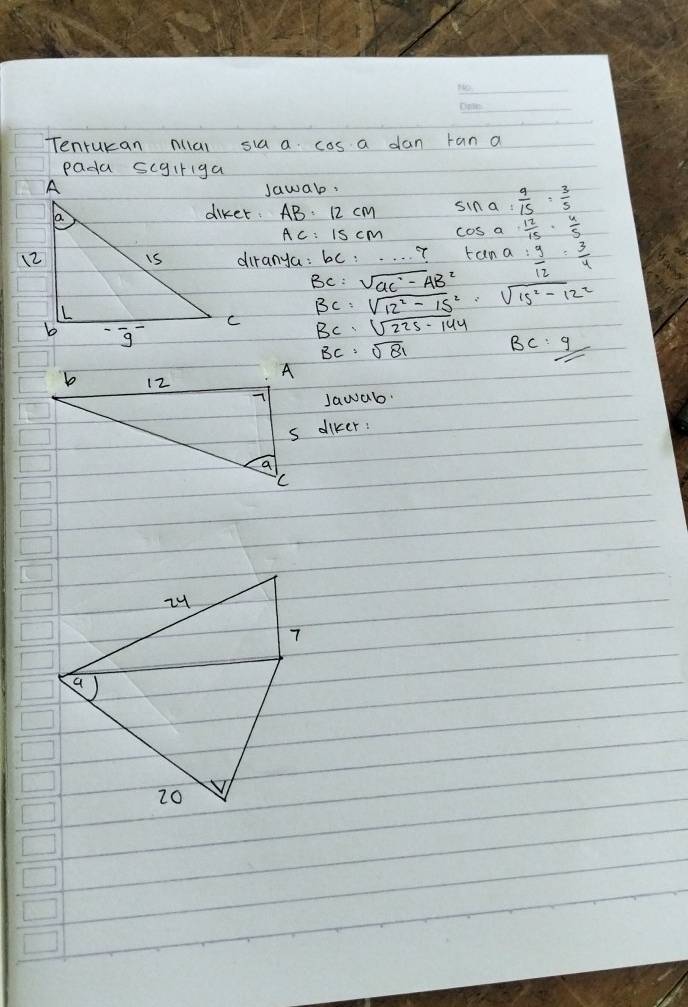 No.
Date
Tentukan nilai sia a. cos. a dan tan a
pada segitiga
A
a
12
15
b
9
C
Jawab:
diket: AB: 12 cm
AC: 15 cm
ditanya: bc: ....?
BC: √ac² - AB²
BC: √12² - 15² . √15² - 12²
BC: √225 - 144
BC: √81
BC: 9
sin a: 9/15 : 3/5
cos a: 12/15 . 4/5
tan a: 9/12 : 3/4
b
12
A
5
a
C
Jawab.
diket:
24
7
a
20